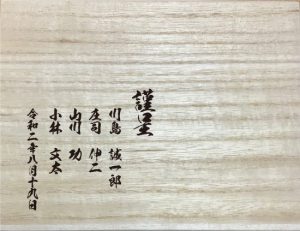 謹呈
川島 誠一郎
庄司 伸二
山川 功
小林 文太
令和二年八月十九日